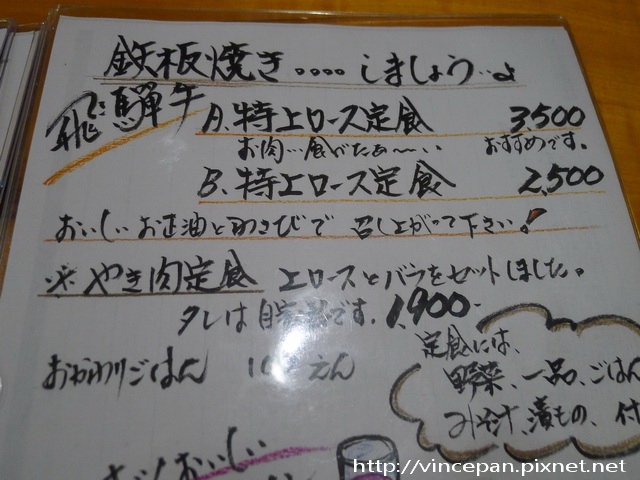 鉄板焼き.... しましょう..よ
飛騨牛
A. 特上ロース定食 3,500
お肉...食べたぁ〜... おすすめです。
B. 特上ロース定食 2,500
おいしいお正油とわさびで 召し上がって下さい!
※ やき肉定食 上ロースとバラをセットしました。
タレは自 です。 1,900-
おかわりごはん えん
定食には、
野菜、一品、ごはん
みそ汁、漬もの、付
おいしい
http://vincepan.pixnet.net